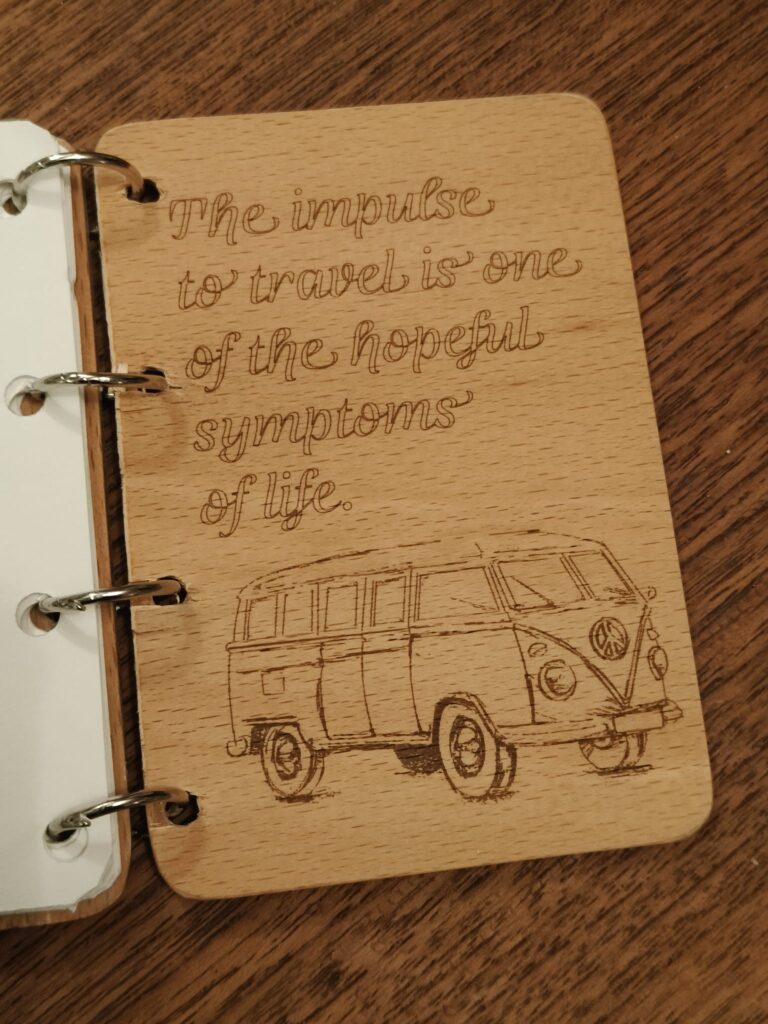 The impulse
to travel is one
of the hopeful
symptoms
of life.